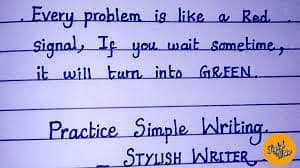 . Every problem is like a Red
signal, If you wait sometime,
it will turn into GREEN.
Practice Simple Writing.
STYLISH WRITER